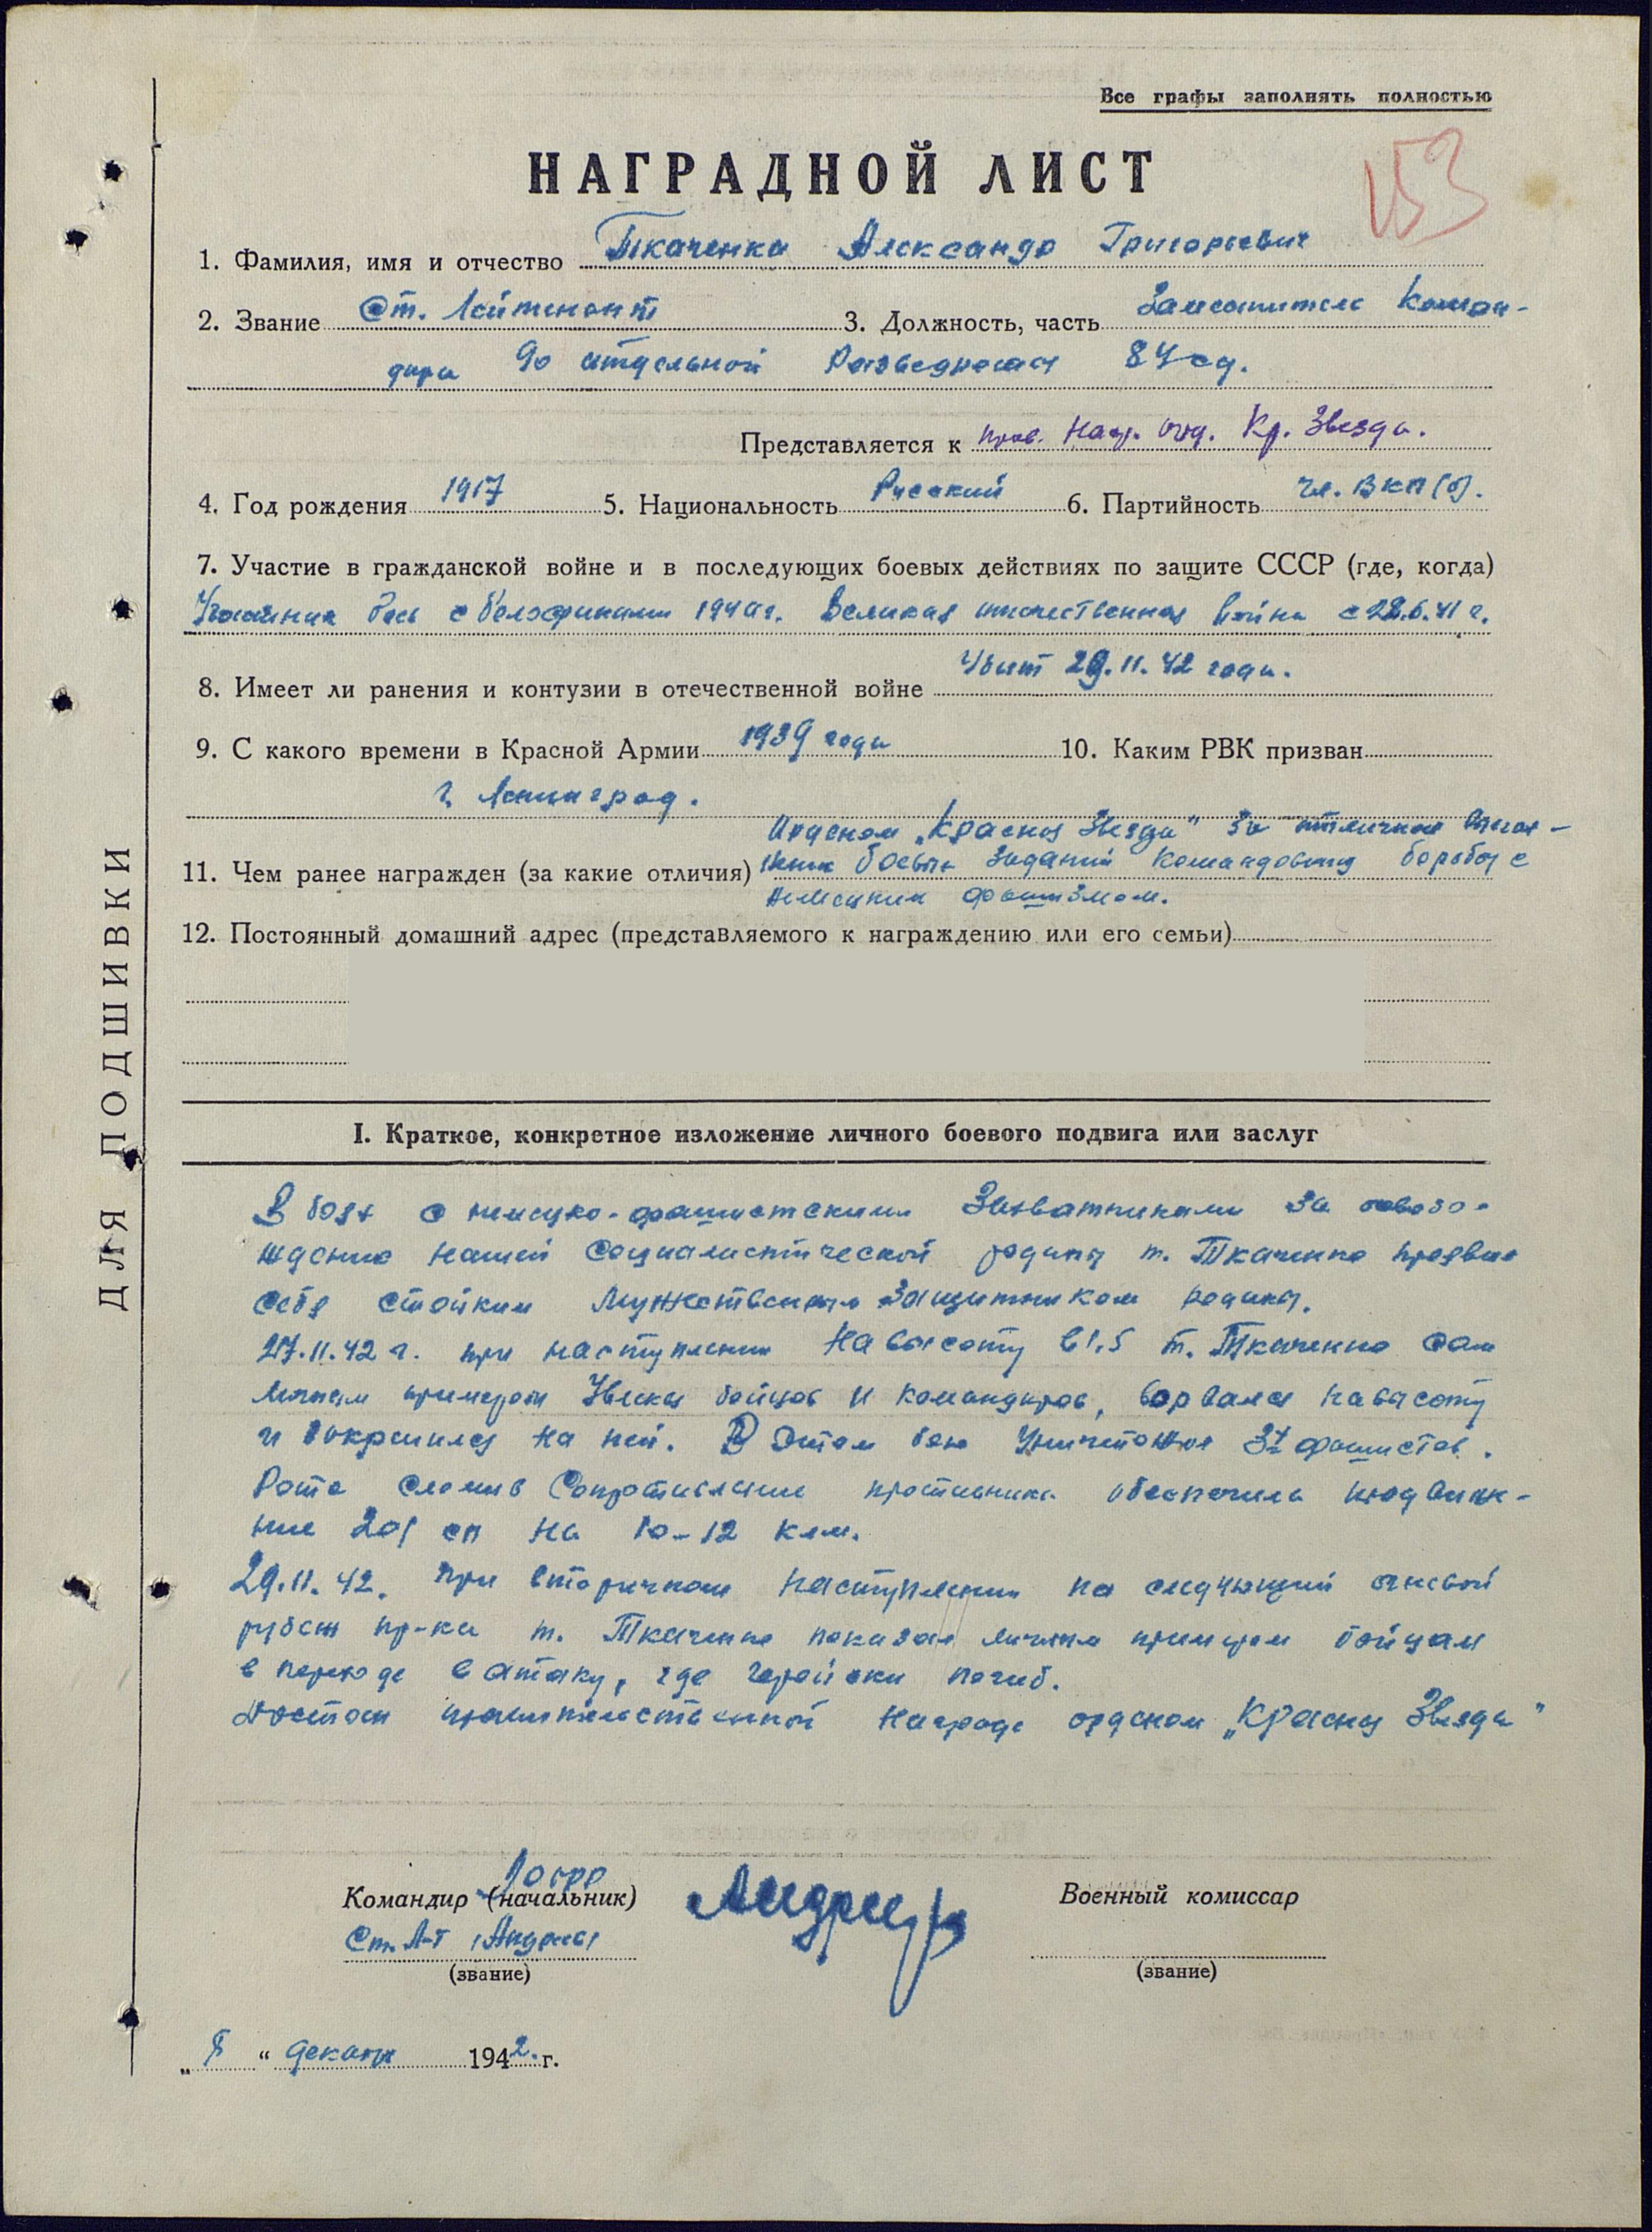 Все графы заполнять полностью
НАГРАДНОЙ ЛИСТ
153
1. Фамилия, имя и отчество Ткаченко Александр Григорьевич
2. Звание Ст. Лейтенант 3. Должность, часть Заместитель Коман-
дира 90 отдельной Разведроты 84 сд.
Представляется к прав. Нагр. орд. Кр. Звезда.
4. Год рождения 1917 5. Национальность Русский 6. Партийность Чл. ВКП(б).
7. Участие в гражданской войне и в последующих боевых действиях по защите СССР (где, когда)
с белофинами 1940 г. Великая отечественная война с 22.6.41 г.
8. Имеет ли ранения и контузии в отечественной войне Убит 29.11.42 года.
9. С какого времени в Красной Армии 1939 года 10. Каким РВК призван
г. Ленинград.
Орденом „Красная Звезда" за отличное выпол-
11. Чем ранее награжден (за какие отличия) нение боевых заданий командования борьбе с
немецким фашизмом.
12. Постоянный домашний адрес (представляемого к награждению или его семьи)
I. Краткое, конкретное изложение личного боевого подвига или заслуг
В боях с немецко-фашистскими Захватчиками за освобо-
ждение нашей Социалистической родины т. Ткаченко проявил
себя стойким мужественным Защитником родины.
27.11.42 г. при наступлении на высоту 61,5 т. Ткаченко сам
личным примером Увлекая бойцов и командиров, ворвался на высоту
и закрепился на ней. В этом бою Уничтожил 3х фашистов.
Рота сломив Сопротивление противника обеспечила продвиже-
ние 201 сп на 10-12 клм.
29.11.42. При вторичном наступлении на следующий огневой
рубеж пр-ка т. Ткаченко показал личным примером бойцам
в переходе в атаку, где геройски погиб.
Достоин правительственной награде орденом „Красная Звезда"
90 орр
Командир (начальник)
Военный комиссар
Ст. Л-т
(звание)
(звание)
" декабря 1942. г.
ДЛЯ ПОДШИВКИ